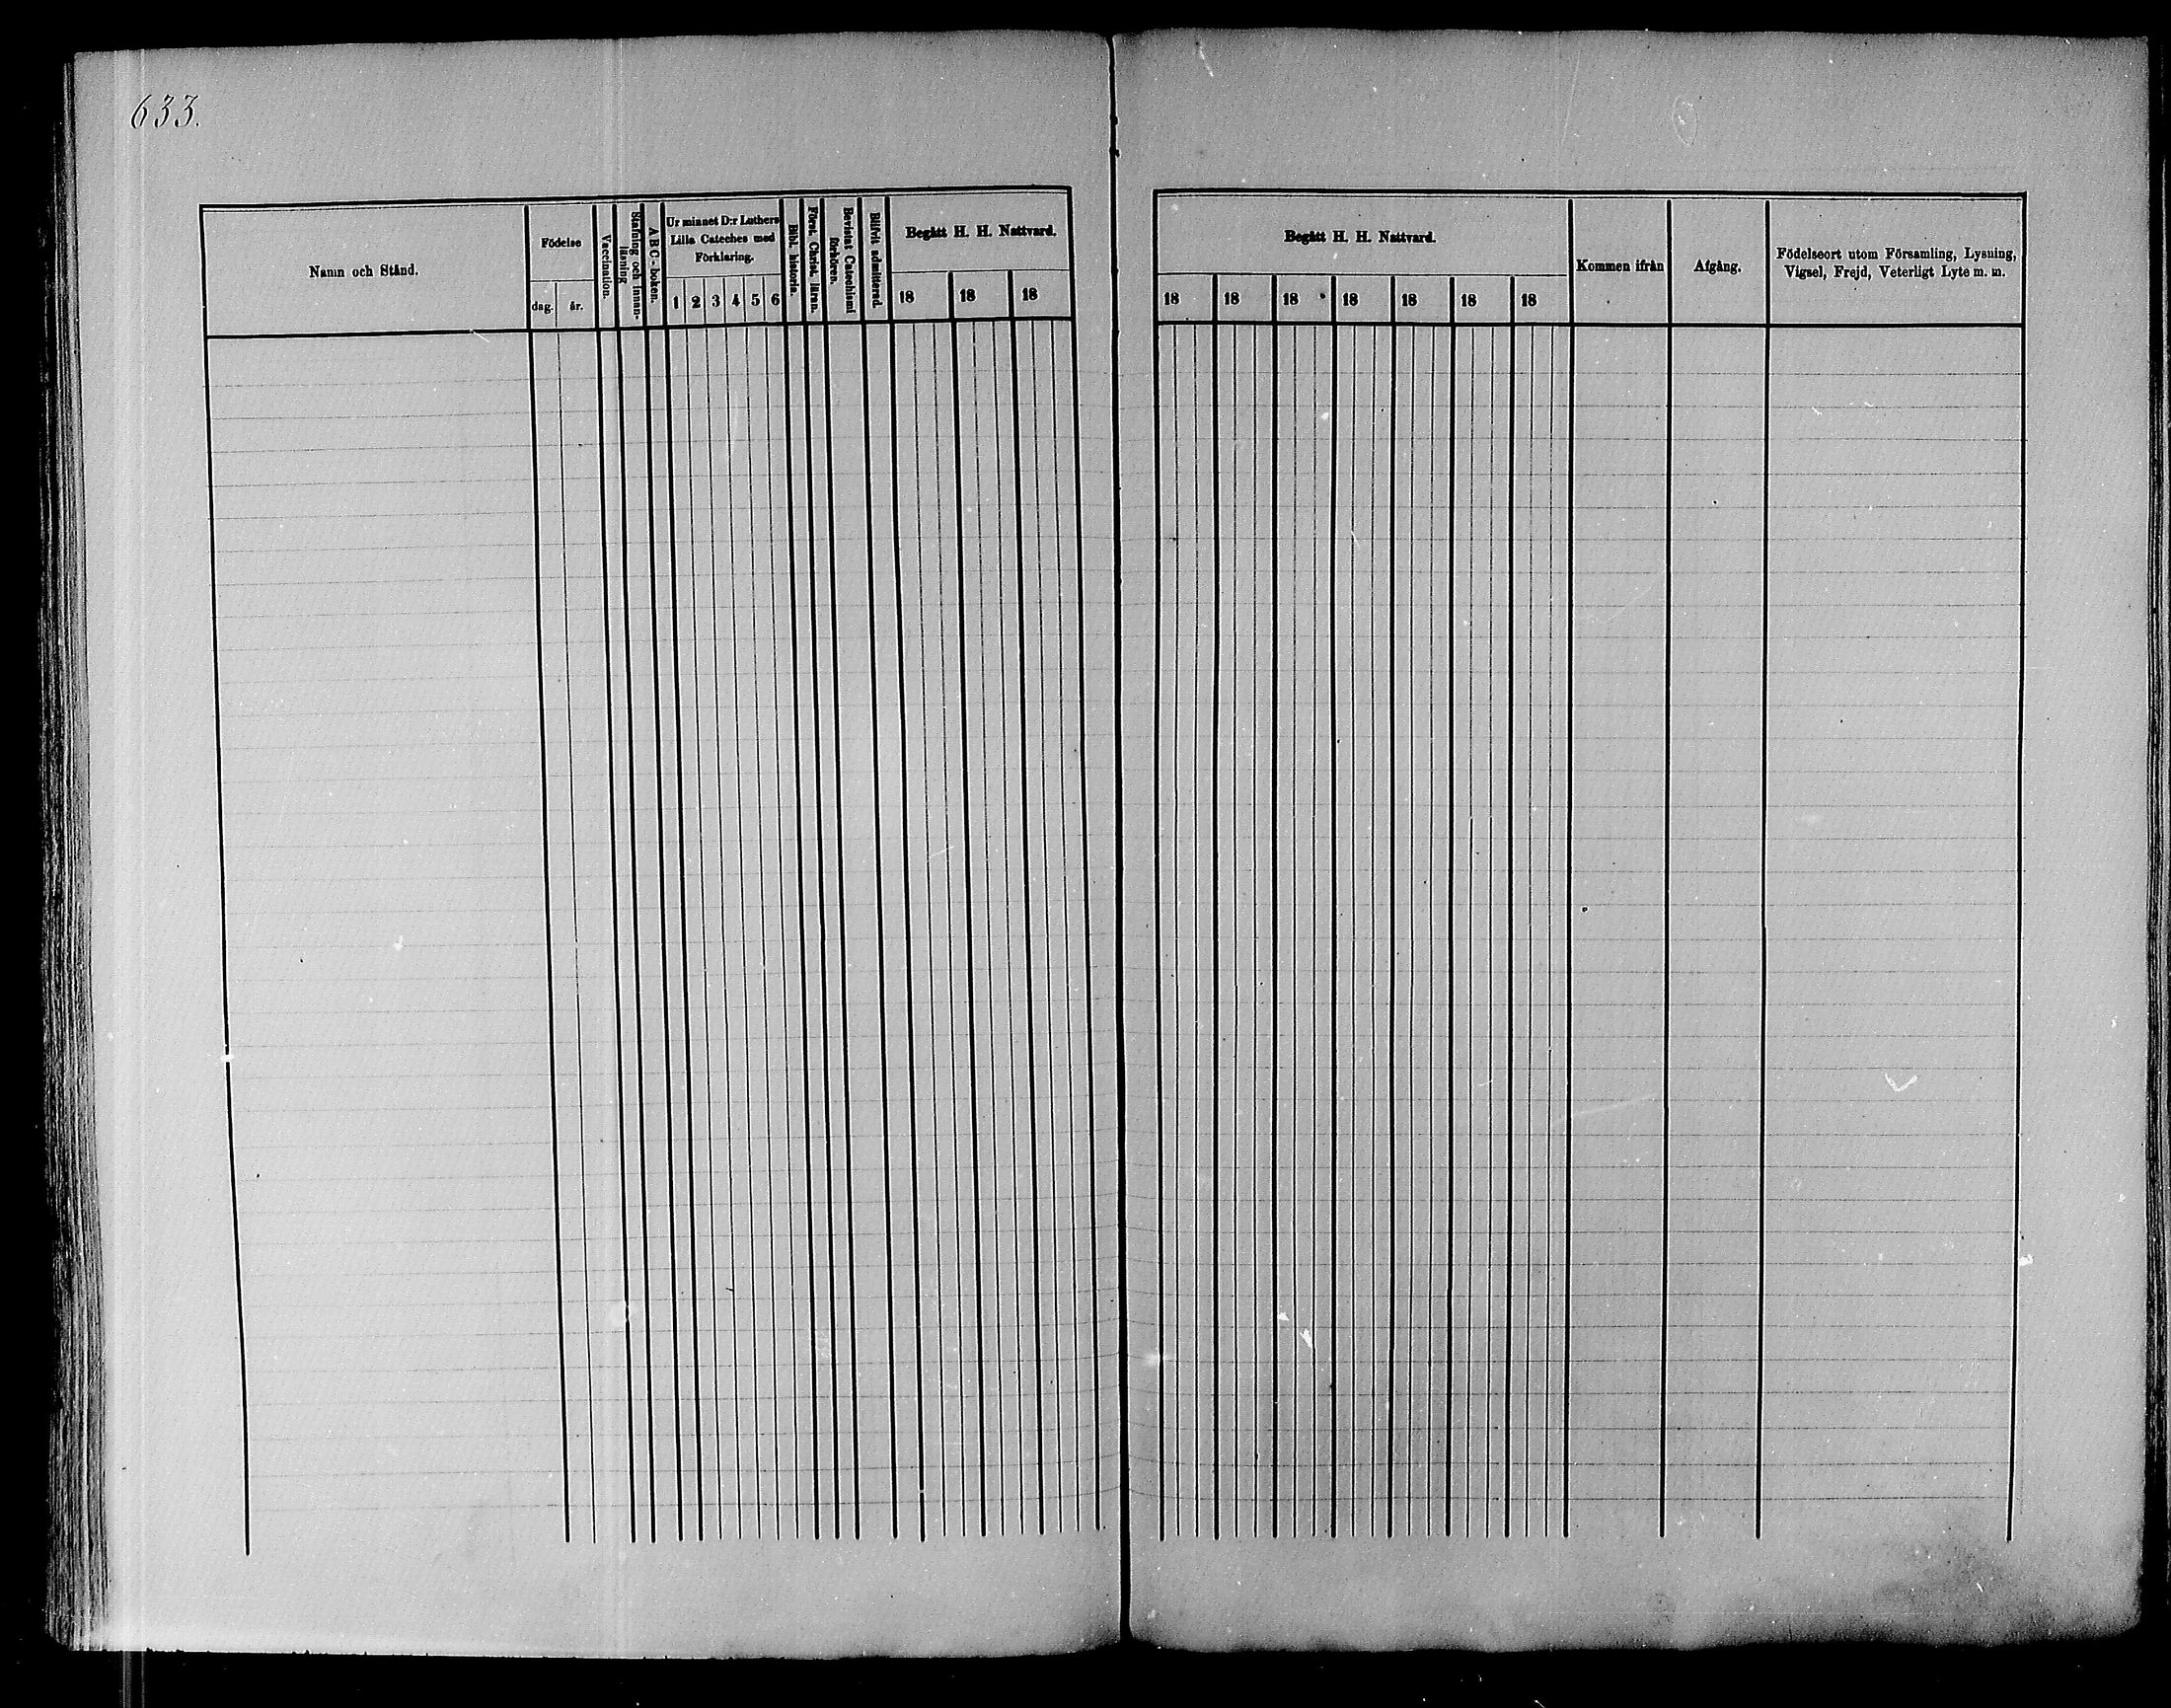 633.
Namn och Stånd.
Födelse
dag.
år.
Vaccination.
Stafning och innan-
läsning
A B C - boken.
Ur minnet D:r Luthers
Lilla Cateches med
Förklaring.
1 2 3 4 5 6
Bibl. historia.
Först. Christ. läran.
Bevistat Catechismi
förhören.
Blifvit admitterad.
Begått H. H. Nattvard.
18 18 18
Begått H. H. Nattvard.
18 18 18 18 18 18 18
Kommen ifrån
Afgång.
Födelseort utom Församling, Lysning,
Vigsel, Frejd, Veterligt Lyte m. m.